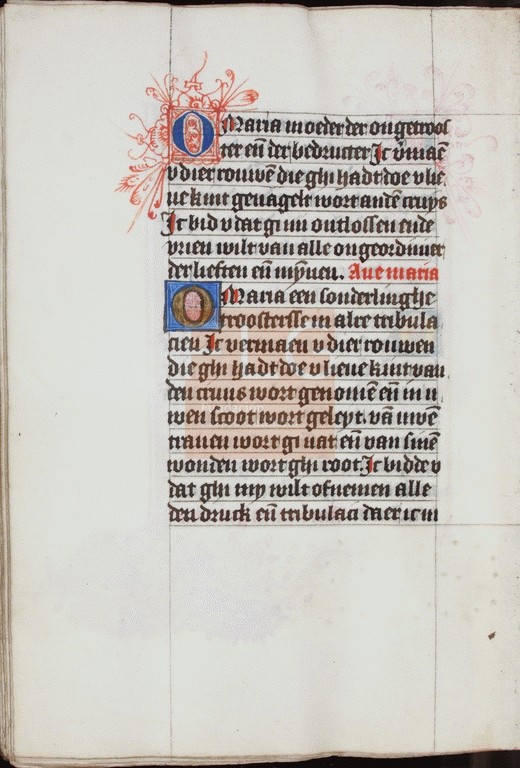 O Maria moeder der ongetroos
ter eñ der bedructer Ic v̄maē
v dier rouwen die ghi hadt doe v lie
ue kint genagelt wort andē cruys
Ic bid v dat gi mi outlossen ende
vrien wilt van alle ongeordinier
der lieften eñ mȳnen. Aue maria
O Maria een sonderlinghe
troostersse in alre tribula
cien Ic vermaen v dier rouwen
die ghi hadt doe v lieue kint van
den cruus wort genomē eñ in u
wen scoot wort geleyt. vā uwē
tranen wort gi nat eñ van sinē
wonden wort ghi root. Ic bidde v
dat ghi my wilt ofnemen alle
den druck eñ tribulaci daer ic in